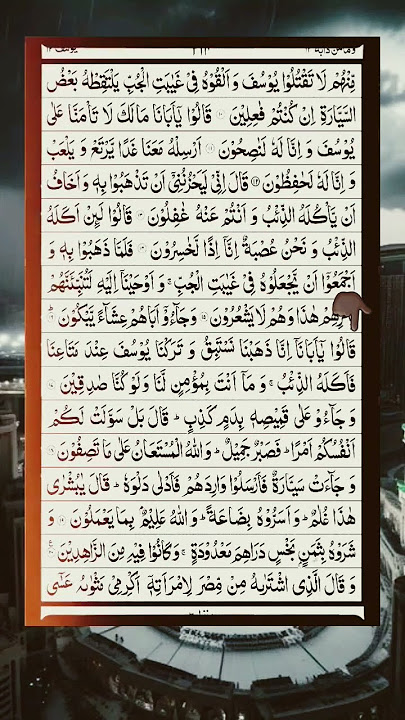 وما من دآبة ١٢ ٢١٣ يوسف ١٢
مِّنْهُمْ لَا تَقْتُلُوْا يُوْسُفَ وَ اَلْقُوْهُ فِیْ غَيٰبَتِ الْجُبِّ يَلْتَقِطْهُ بَعْضُ
السَّيَّارَةِ اِنْ كُنْتُمْ فٰعِلِيْنَ ۱۰ قَالُوْا يٰۤاَبَانَا مَا لَكَ لَا تَاْمَنَّا عَلٰى
يُوْسُفَ وَ اِنَّا لَهٗ لَنٰصِحُوْنَ ۱۱ اَرْسِلْهُ مَعَنَا غَدًا يَّرْتَعْ وَ يَلْعَبْ
وَ اِنَّا لَهٗ لَحٰفِظُوْنَ ۱۲ قَالَ اِنِّیْ لَيَحْزُنُنِیْۤ اَنْ تَذْهَبُوْا بِهٖ وَ اَخَافُ
اَنْ يَّاْكُلَهُ الذِّئْبُ وَ اَنْتُمْ عَنْهُ غٰفِلُوْنَ ۱۳ قَالُوْا لَئِنْ اَكَلَهُ
الذِّئْبُ وَ نَحْنُ عُصْبَةٌ اِنَّاۤ اِذًا لَّخٰسِرُوْنَ ۱۴ فَلَمَّا ذَهَبُوْا بِهٖ وَ
اَجْمَعُوْۤا اَنْ يَّجْعَلُوْهُ فِیْ غَيٰبَتِ الْجُبِّ ۚ وَ اَوْحَيْنَاۤ اِلَيْهِ لَتُنَبِّئَنَّهُمْ
هٰذَا وَ هُمْ لَا يَشْعُرُوْنَ ۱۵ وَ جَآءُوْۤ اَبَاهُمْ عِشَآءً يَّبْكُوْنَ ۱۶
قَالُوْا يٰۤاَبَانَاۤ اِنَّا ذَهَبْنَا نَسْتَبِقُ وَ تَرَكْنَا يُوْسُفَ عِنْدَ مَتَاعِنَا
فَاَكَلَهُ الذِّئْبُ ۚ وَ مَاۤ اَنْتَ بِمُؤْمِنٍ لَّنَا وَ لَوْ كُنَّا صٰدِقِيْنَ ۱۷
وَ جَآءُوْ عَلٰى قَمِيْصِهٖ بِدَمٍ كَذِبٍ ؕ قَالَ بَلْ سَوَّلَتْ لَكُمْ
اَنْفُسُكُمْ اَمْرًا ؕ فَصَبْرٌ جَمِيْلٌ ؕ وَ اللّٰهُ الْمُسْتَعَانُ عَلٰى مَا تَصِفُوْنَ ۱۸
وَ جَآءَتْ سَيَّارَةٌ فَاَرْسَلُوْا وَارِدَهُمْ فَاَدْلٰى دَلْوَهٗ ؕ قَالَ يٰبُشْرٰى
هٰذَا غُلٰمٌ ؕ وَ اَسَرُّوْهُ بِضَاعَةً ؕ وَ اللّٰهُ عَلِيْمٌۢ بِمَا يَعْمَلُوْنَ ۱۹ وَ
شَرَوْهُ بِثَمَنٍۭ بَخْسٍ دَرَاهِمَ مَعْدُوْدَةٍ ۚ وَ كَانُوْا فِيْهِ مِنَ الزَّاهِدِيْنَ ۲۰
وَ قَالَ الَّذِی اشْتَرٰىهُ مِنْ مِّصْرَ لِامْرَاَتِهٖۤ اَكْرِمِیْ مَثْوٰىهُ عَسٰۤى